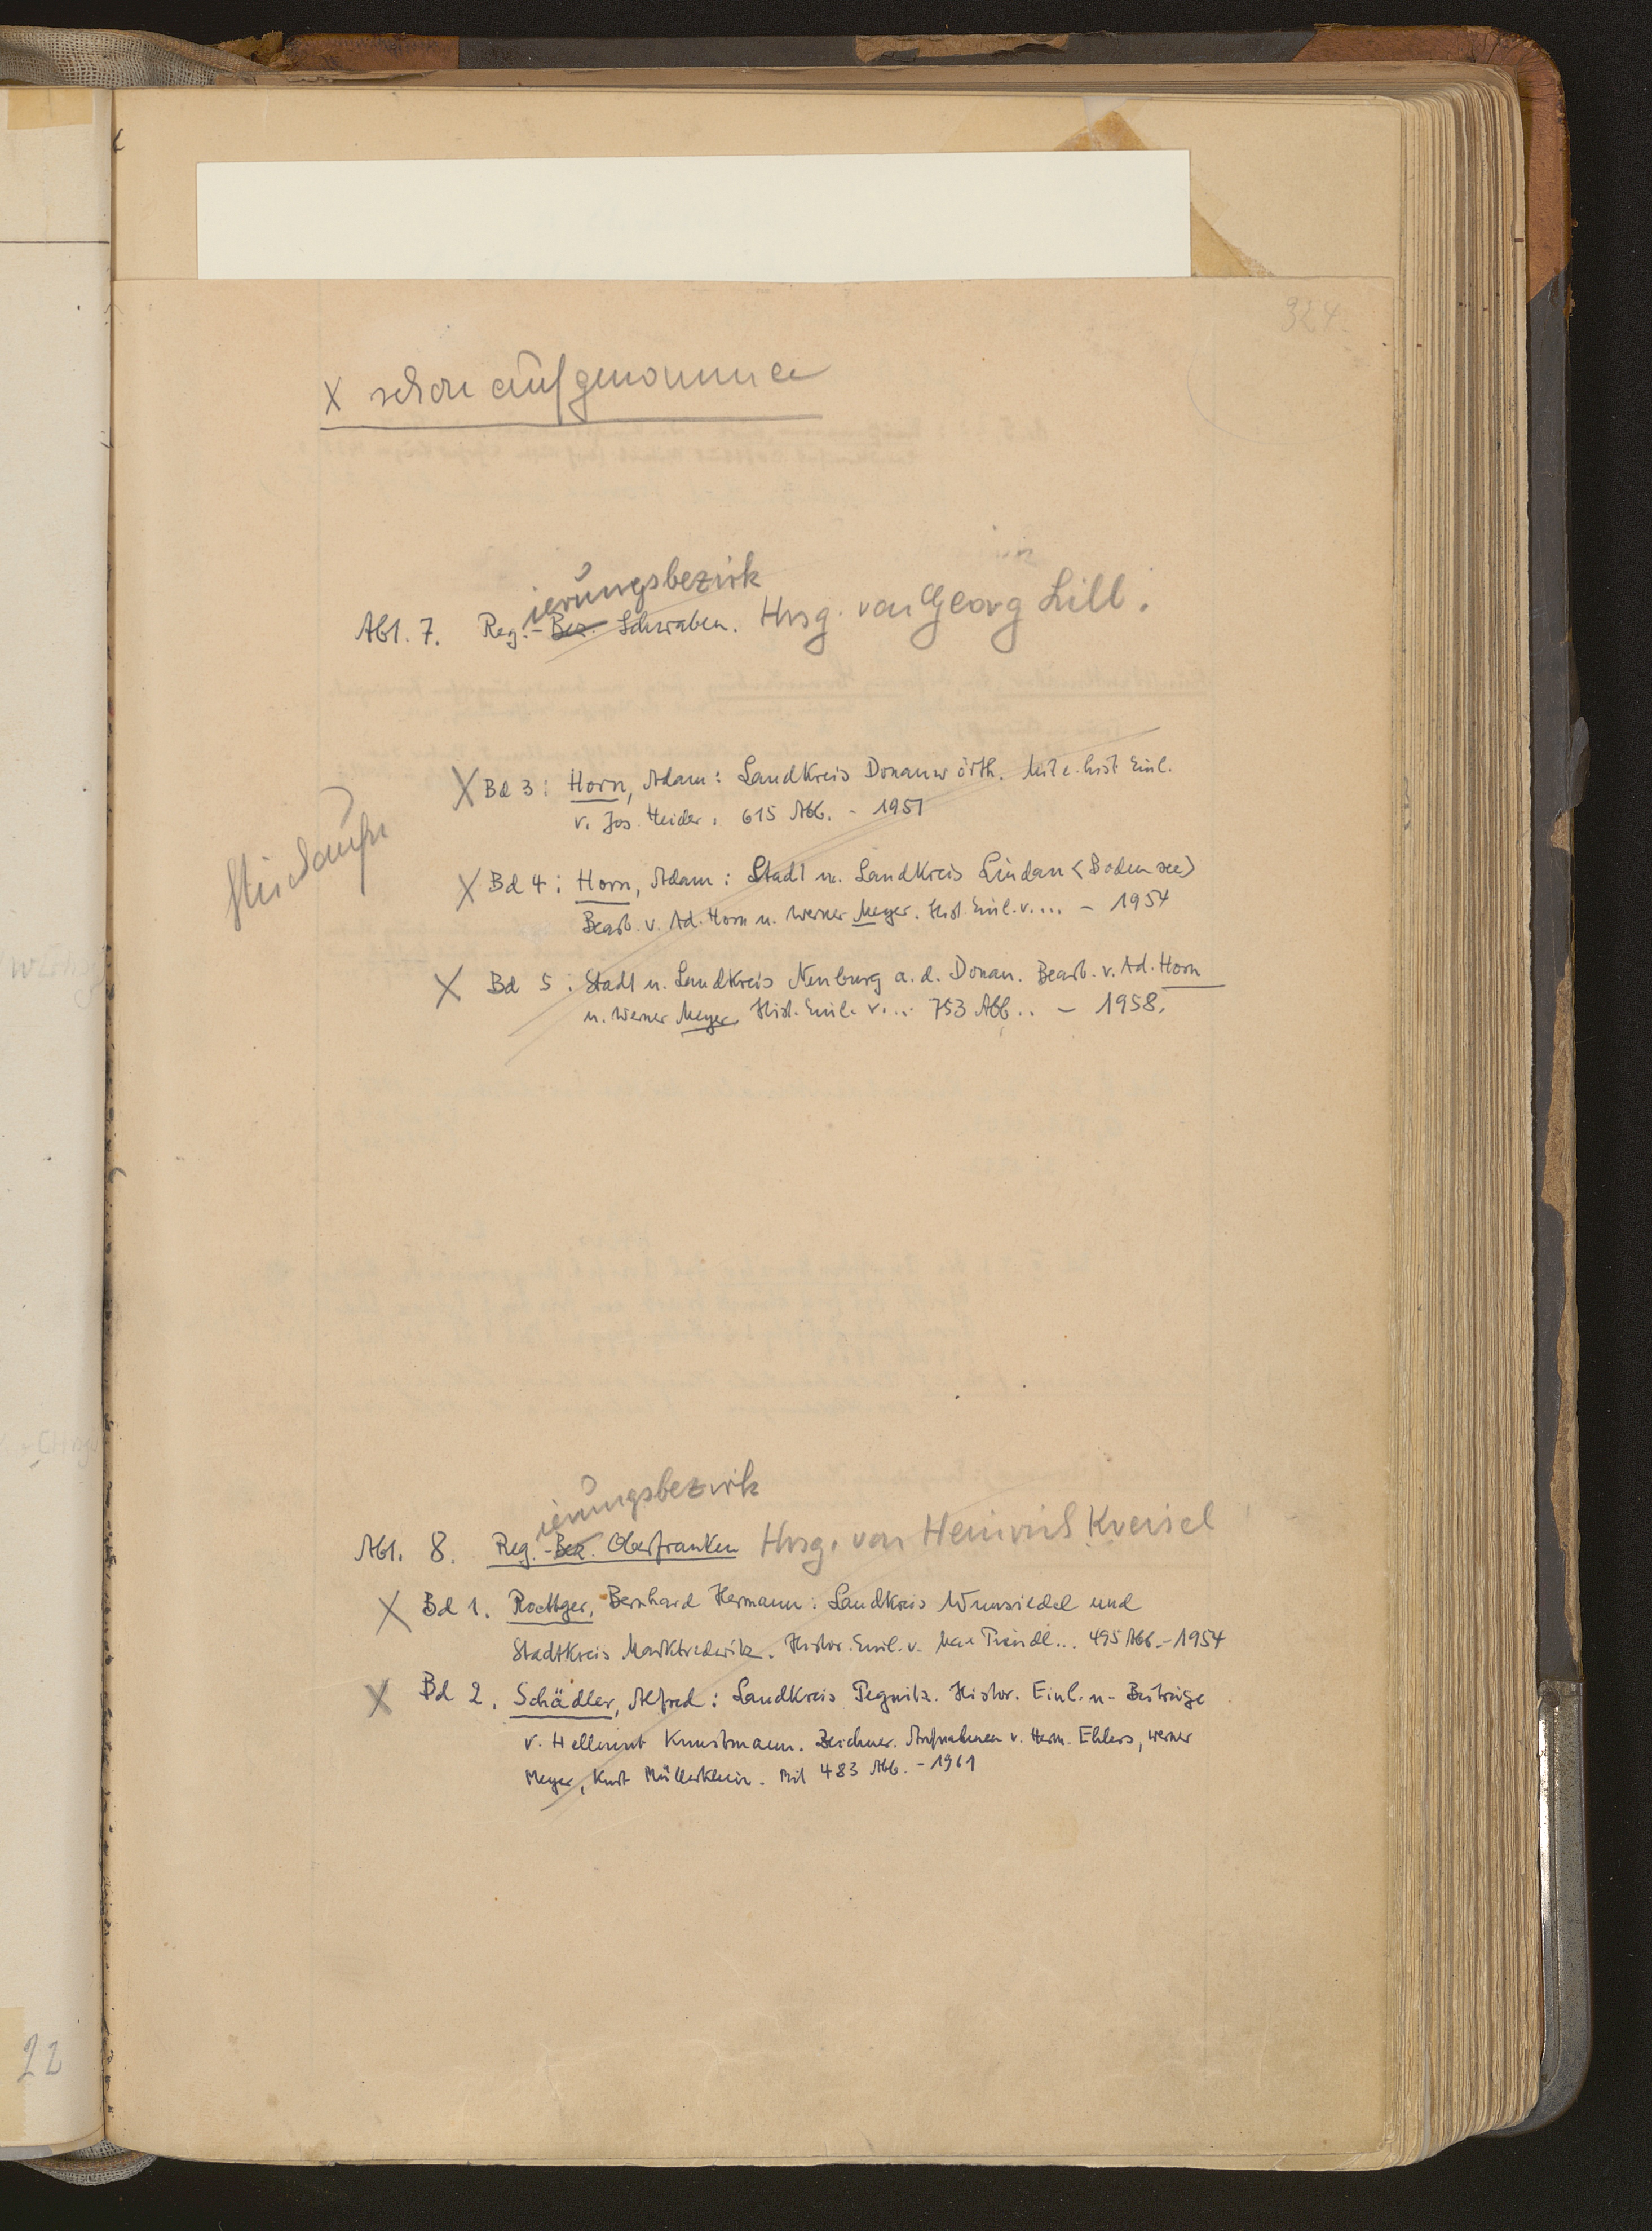 324
X schon aufgenommen
ierungsbezirk
Abt. 7. Reg.-Bez. Schwaben. Hrsg. von Georg Lill.
X Bd 3: Horn, Adam: Landkreis Donauwörth. Mit e. hist Einl.
v. Jos. Heider. 615 Abb. - 1951
X Bd 4: Horn, Adam: Stadt u. Landkreis Lindau <Bodensee>
Bearb. v. Ad. Horn u. Werner Meyer. Hist. Einl. v.... - 1954
X Bd 5: Stadt u. Landkreis Neuburg a. d. Donau. Bearb. v. Ad. Horn
u. Werner Meyer. Hist. Einl. v... 753 Abb.. - 1958.
ierungsbezirk
Abt. 8. Reg.-Bez. Oberfranken Hrsg. von Heinrich Kreisel
X Bd 1. Roettger, Bernhard Hermann: Landkreis Wunsiedel und
Stadtkreis Marktredwitz. Histor. Einl. v. ... 495 Abb. - 1954
X Bd 2. Schädler, Alfred: Landkreis Pegnitz. Histor. Einl. u. Beiträge
v. Hellmut Kunstmann. Zeichner. Aufnahmen v. Herm. Ehlers, Werner
Meyer, Kurt Müllerklein. Mit 483 Abb. - 1961
22